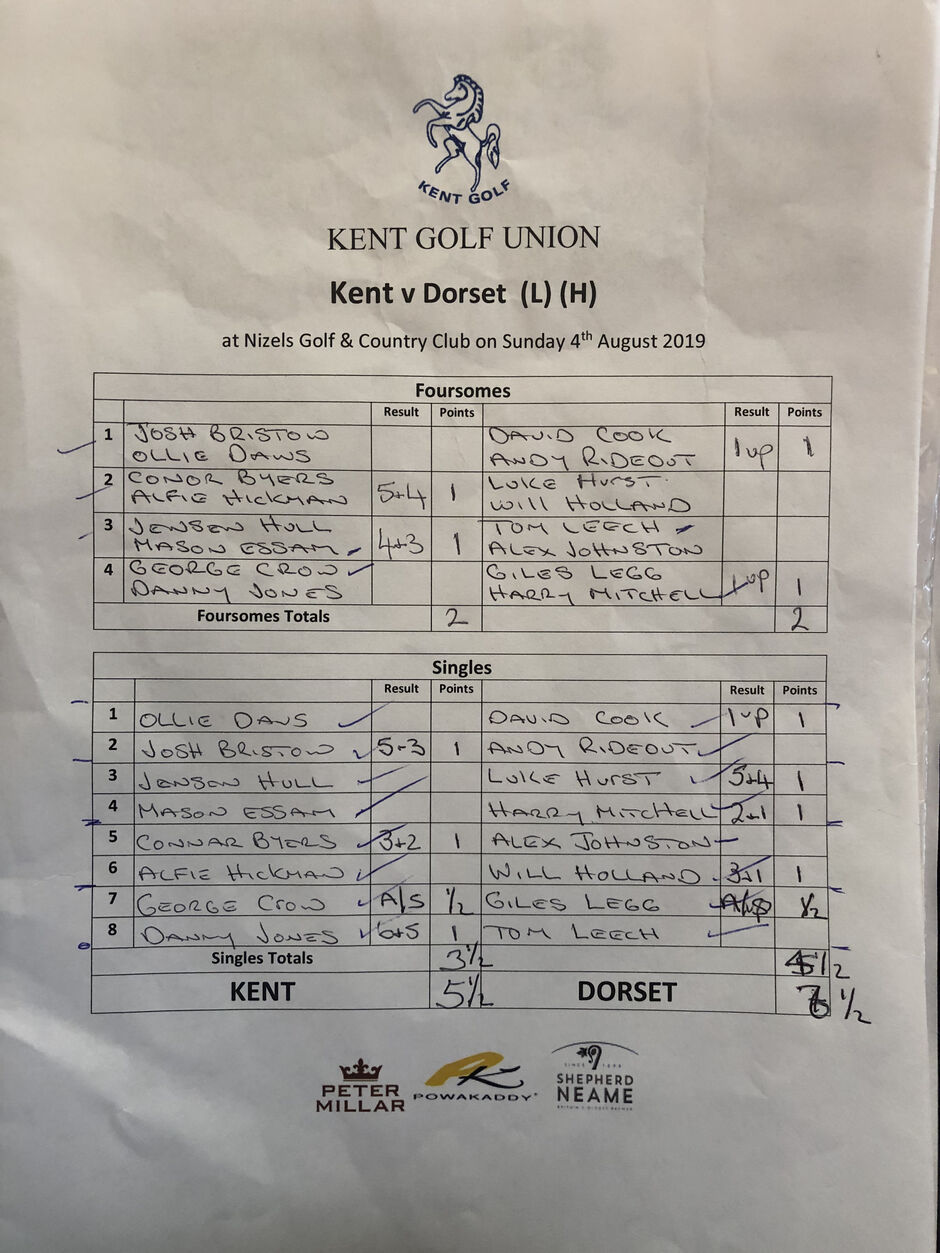 KENT GOLF
KENT GOLF UNION
Kent v Dorset (L) (H)
at Nizels Golf & Country Club on Sunday 4th August 2019
Foursomes
Result Points Result Points
1 JOSH BRISTOW DAVID COOK
OLLIE DAWS ANDY RIDEOUT 1 up 1
2 CONOR BYERS LUKE HURST
ALFIE HICKMAN 5+4 1 WILL HOLLAND
3 JENSEN HULL TOM LEECH
MASON ESSAM 4+3 1 ALEX JOHNSTON
4 GEORGE CROW GILES LEGG
DANNY JONES HARRY MITCHELL 1 up 1
Foursomes Totals 2 2
Singles
Result Points Result Points
1 OLLIE DAWS DAVID COOK 1 UP 1
2 JOSH BRISTOW 5-3 1 ANDY RIDEOUT
3 JENSON HULL LUKE HURST 5+4 1
4 MASON ESSAM HARRY MITCHELL 2+1 1
5 CONNAR BYERS 3+2 1 ALEX JOHNSTON
6 ALFIE HICKMAN WILL HOLLAND 3+1 1
7 GEORGE CROW A/S 1/2 GILES LEGG A/S 1/2
8 DANNY JONES 6+5 1 TOM LEECH
Singles Totals 3 1/2 4 1/2
KENT 5 1/2 DORSET 6 1/2
PETER MILLAR
POWAKADDY
SINCE 1698
SHEPHERD
NEAME
BRITAIN'S OLDEST BREWER